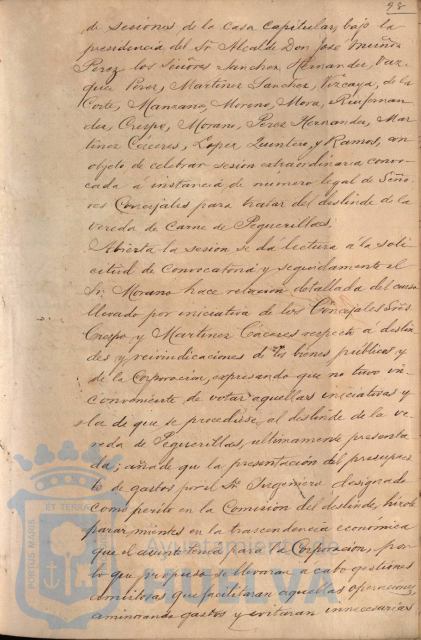 98
de sesiones de la casa Capitular, bajo la
presidencia del Sr Alcalde Don José Muñoz
Perez los Señores Sanchez Hernandez, Vaz-
quez Perez, Martinez Sanchez, Vizcaya, de la
Corte, Manzano, Moreno, Mora, Ruifernan-
dez, Crespo, Morano, Perez Hernandez, Mar-
tinez Cáceres, Lopez, Quintero, y Ramos, con
objeto de celebrar sesion extraordinaria convo-
cada a instancia de numero legal de Seño-
res Concejales para tratar del deslinde de la
Vereda de Carne de Peguerillas.
Abierta la sesion se dá lectura á la soli-
citud de Convocatoria y seguidamente el
Sr. Morano hace relacion detallada del curso
llevado por iniciativa de los Concejales Sres
Crespo y Martinez Cáceres respecto a deslin-
des y reivindicaciones de los bienes publicos y
de la Corporacion, expresando que no tuvo in-
conveniente de votar aquellas iniciativas y
la de que se procediese al deslinde de la ve-
reda de Peguerillas, ultimamente presenta-
da; añade que la presentacion del presupues-
to de gastos por el Sr Ingeniero designado
como perito en la Comision del deslinde, hizole
parar mientes en la trascendencia economica
que el asunto tenia para la Corporacion, por
lo que propuso se llevaran a cabo gestiones
amistosas que facilitaran aquellas operaciones,
aminorando gastos y evitaran innecesarias
PORTUS MARIS
ET TERRAE
Ayuntamiento de
HUELVA